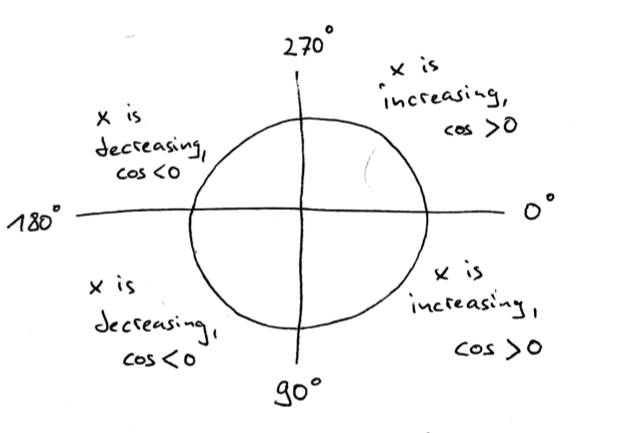 270°
x is
increasing,
cos >0
x is
decreasing,
cos <0
180°
0°
x is
decreasing,
cos <0
x is
increasing,
cos >0
90°